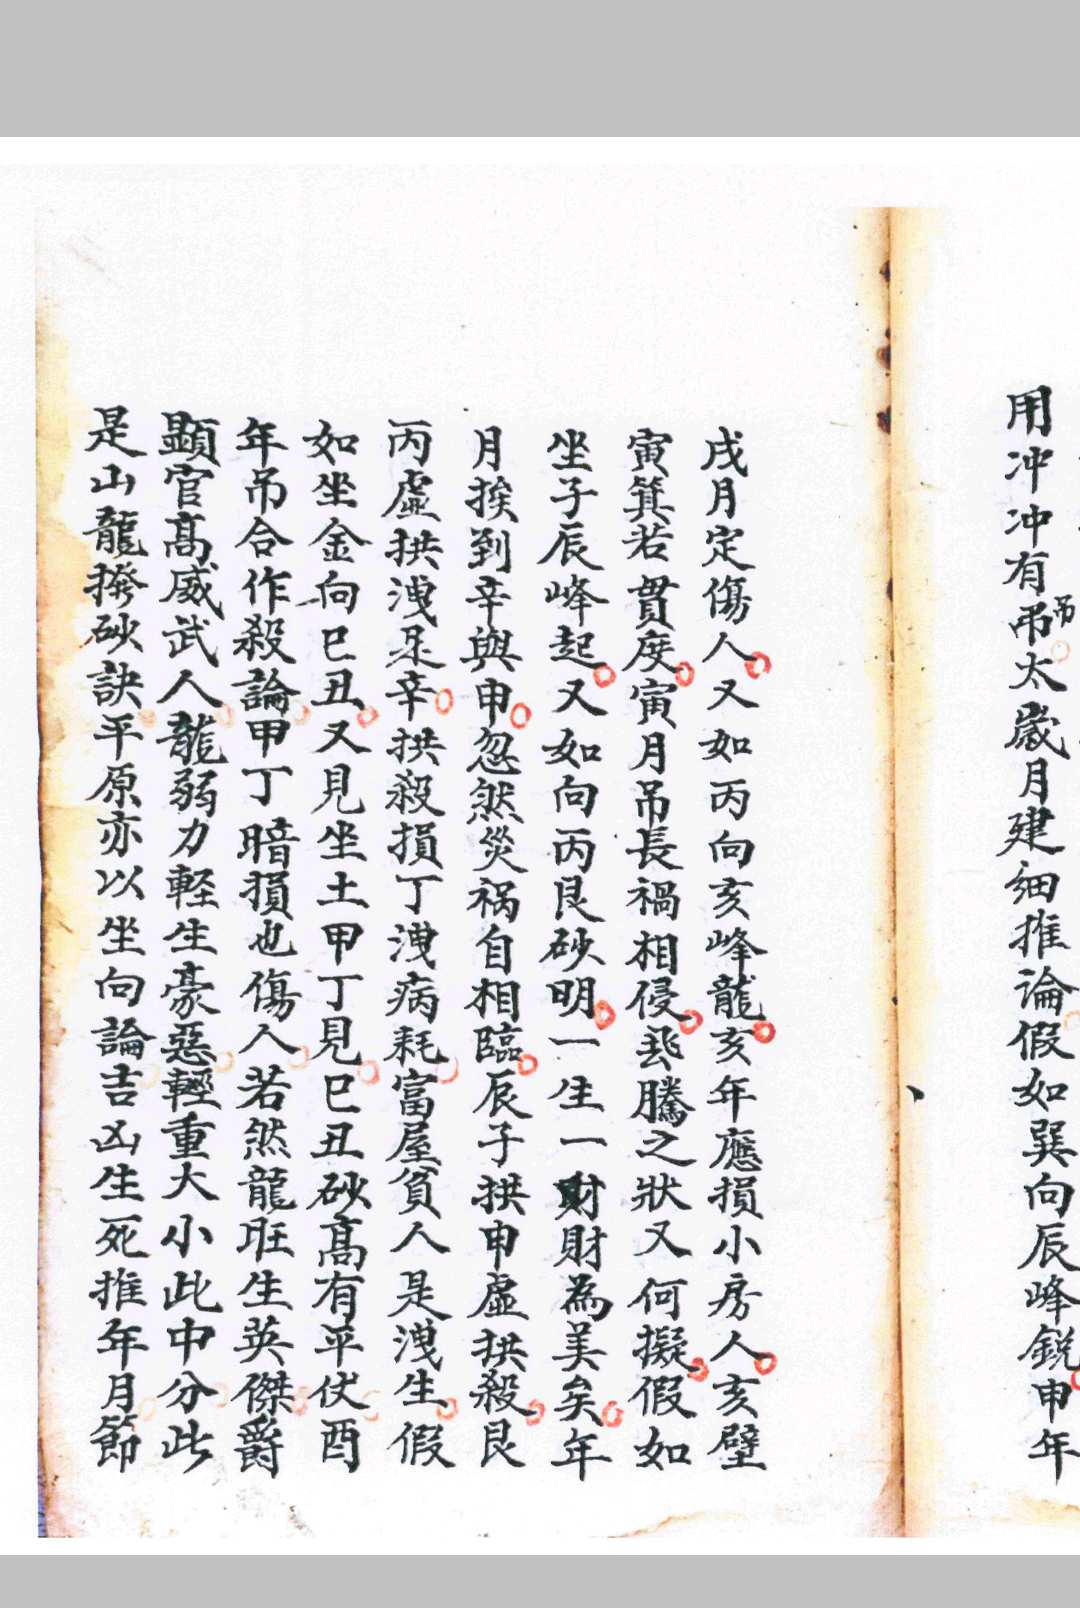 用冲冲有吊太歲月建細推論假如巽向辰峰銳申年
吊
戌月定傷人又如丙向亥峰龍亥年應損小房人亥壁
寅箕若貫度寅月吊長禍相侵飛騰之狀又何擬假如
坐子辰峰起又如向丙艮砂明一生一財財為美矣年
月挨到辛與申忽然災禍自相臨辰子拱申虛拱殺艮
丙虛拱洩是辛拱殺損丁洩病耗富屋貧人是洩生假
如坐金向巳丑又見坐土甲丁見巳丑砂高有平伏酉
年吊合作殺論甲丁暗損也傷人若然龍旺生英傑爵
顯官高威武人龍弱力軽生豪惡輕重大小此中分此
是山龍撥砂訣平原亦以坐向論吉凶生死推年月節